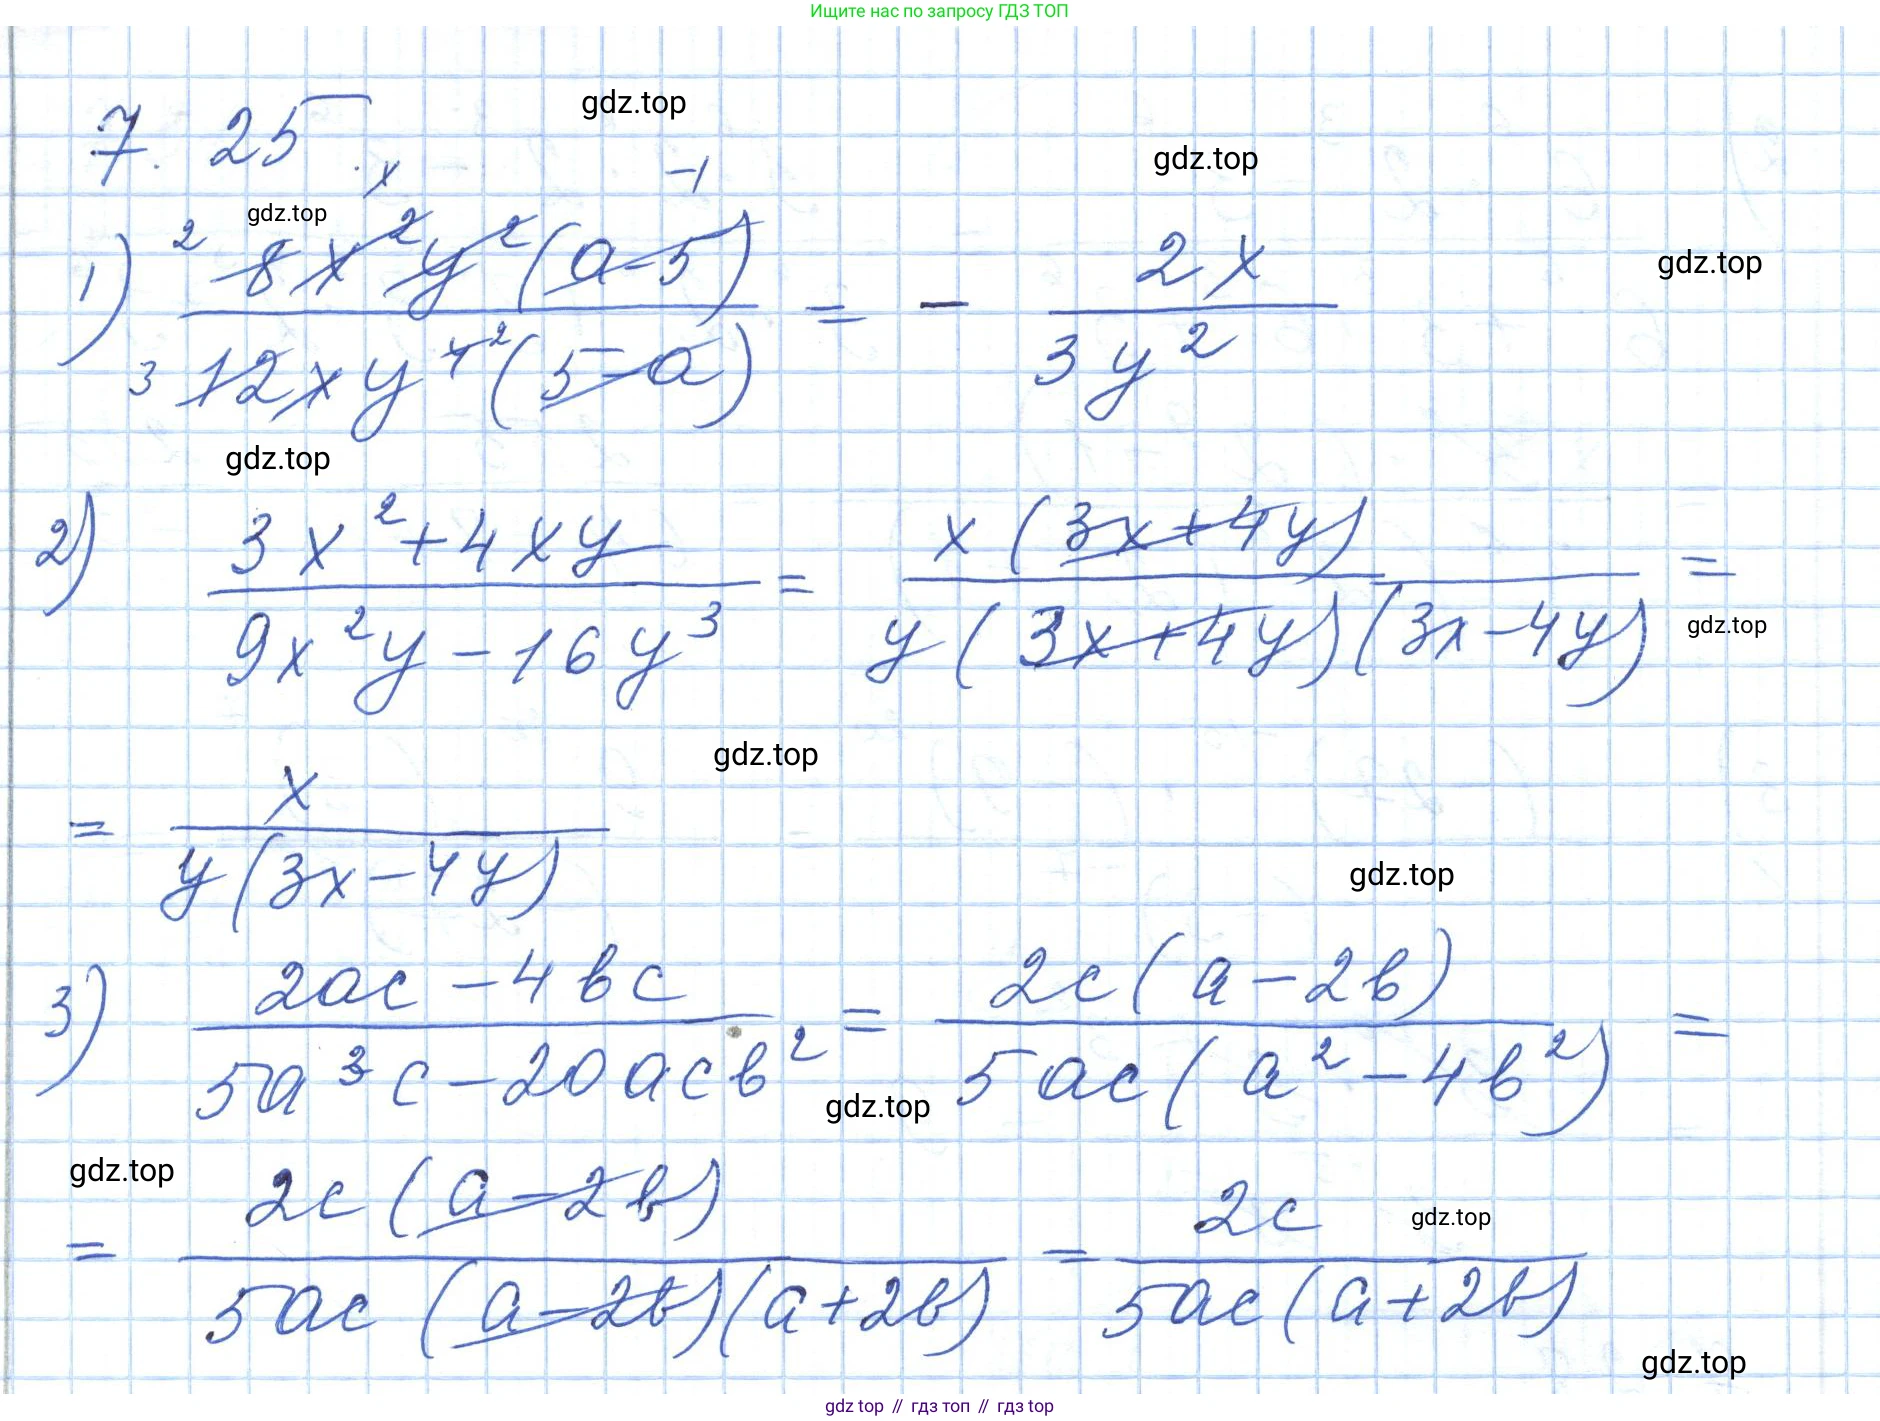 Ищите нас по запросу ГДЗ ТОП
7. 25
gdz.top
gdz.top
gdz.top
gdz.top
1) 8x²y²(a-5) / 12xy⁴(5-a) = - 2x / 3y²
2 x -1
3 2
gdz.top
2) 3x²+4xy / 9x²y-16y³ = x(3x+4y) / y(3x+4y)(3x-4y) =
gdz.top
gdz.top
= x / y(3x-4y)
gdz.top
3) 2ac-4bc / 5a³c-20acb² = 2c(a-2b) / 5ac(a²-4b²) =
gdz.top
gdz.top
= 2c(a-2b) / 5ac(a-2b)(a+2b) = 2c / 5ac(a+2b)
gdz.top
gdz.top
gdz top // гдз топ // гдз top